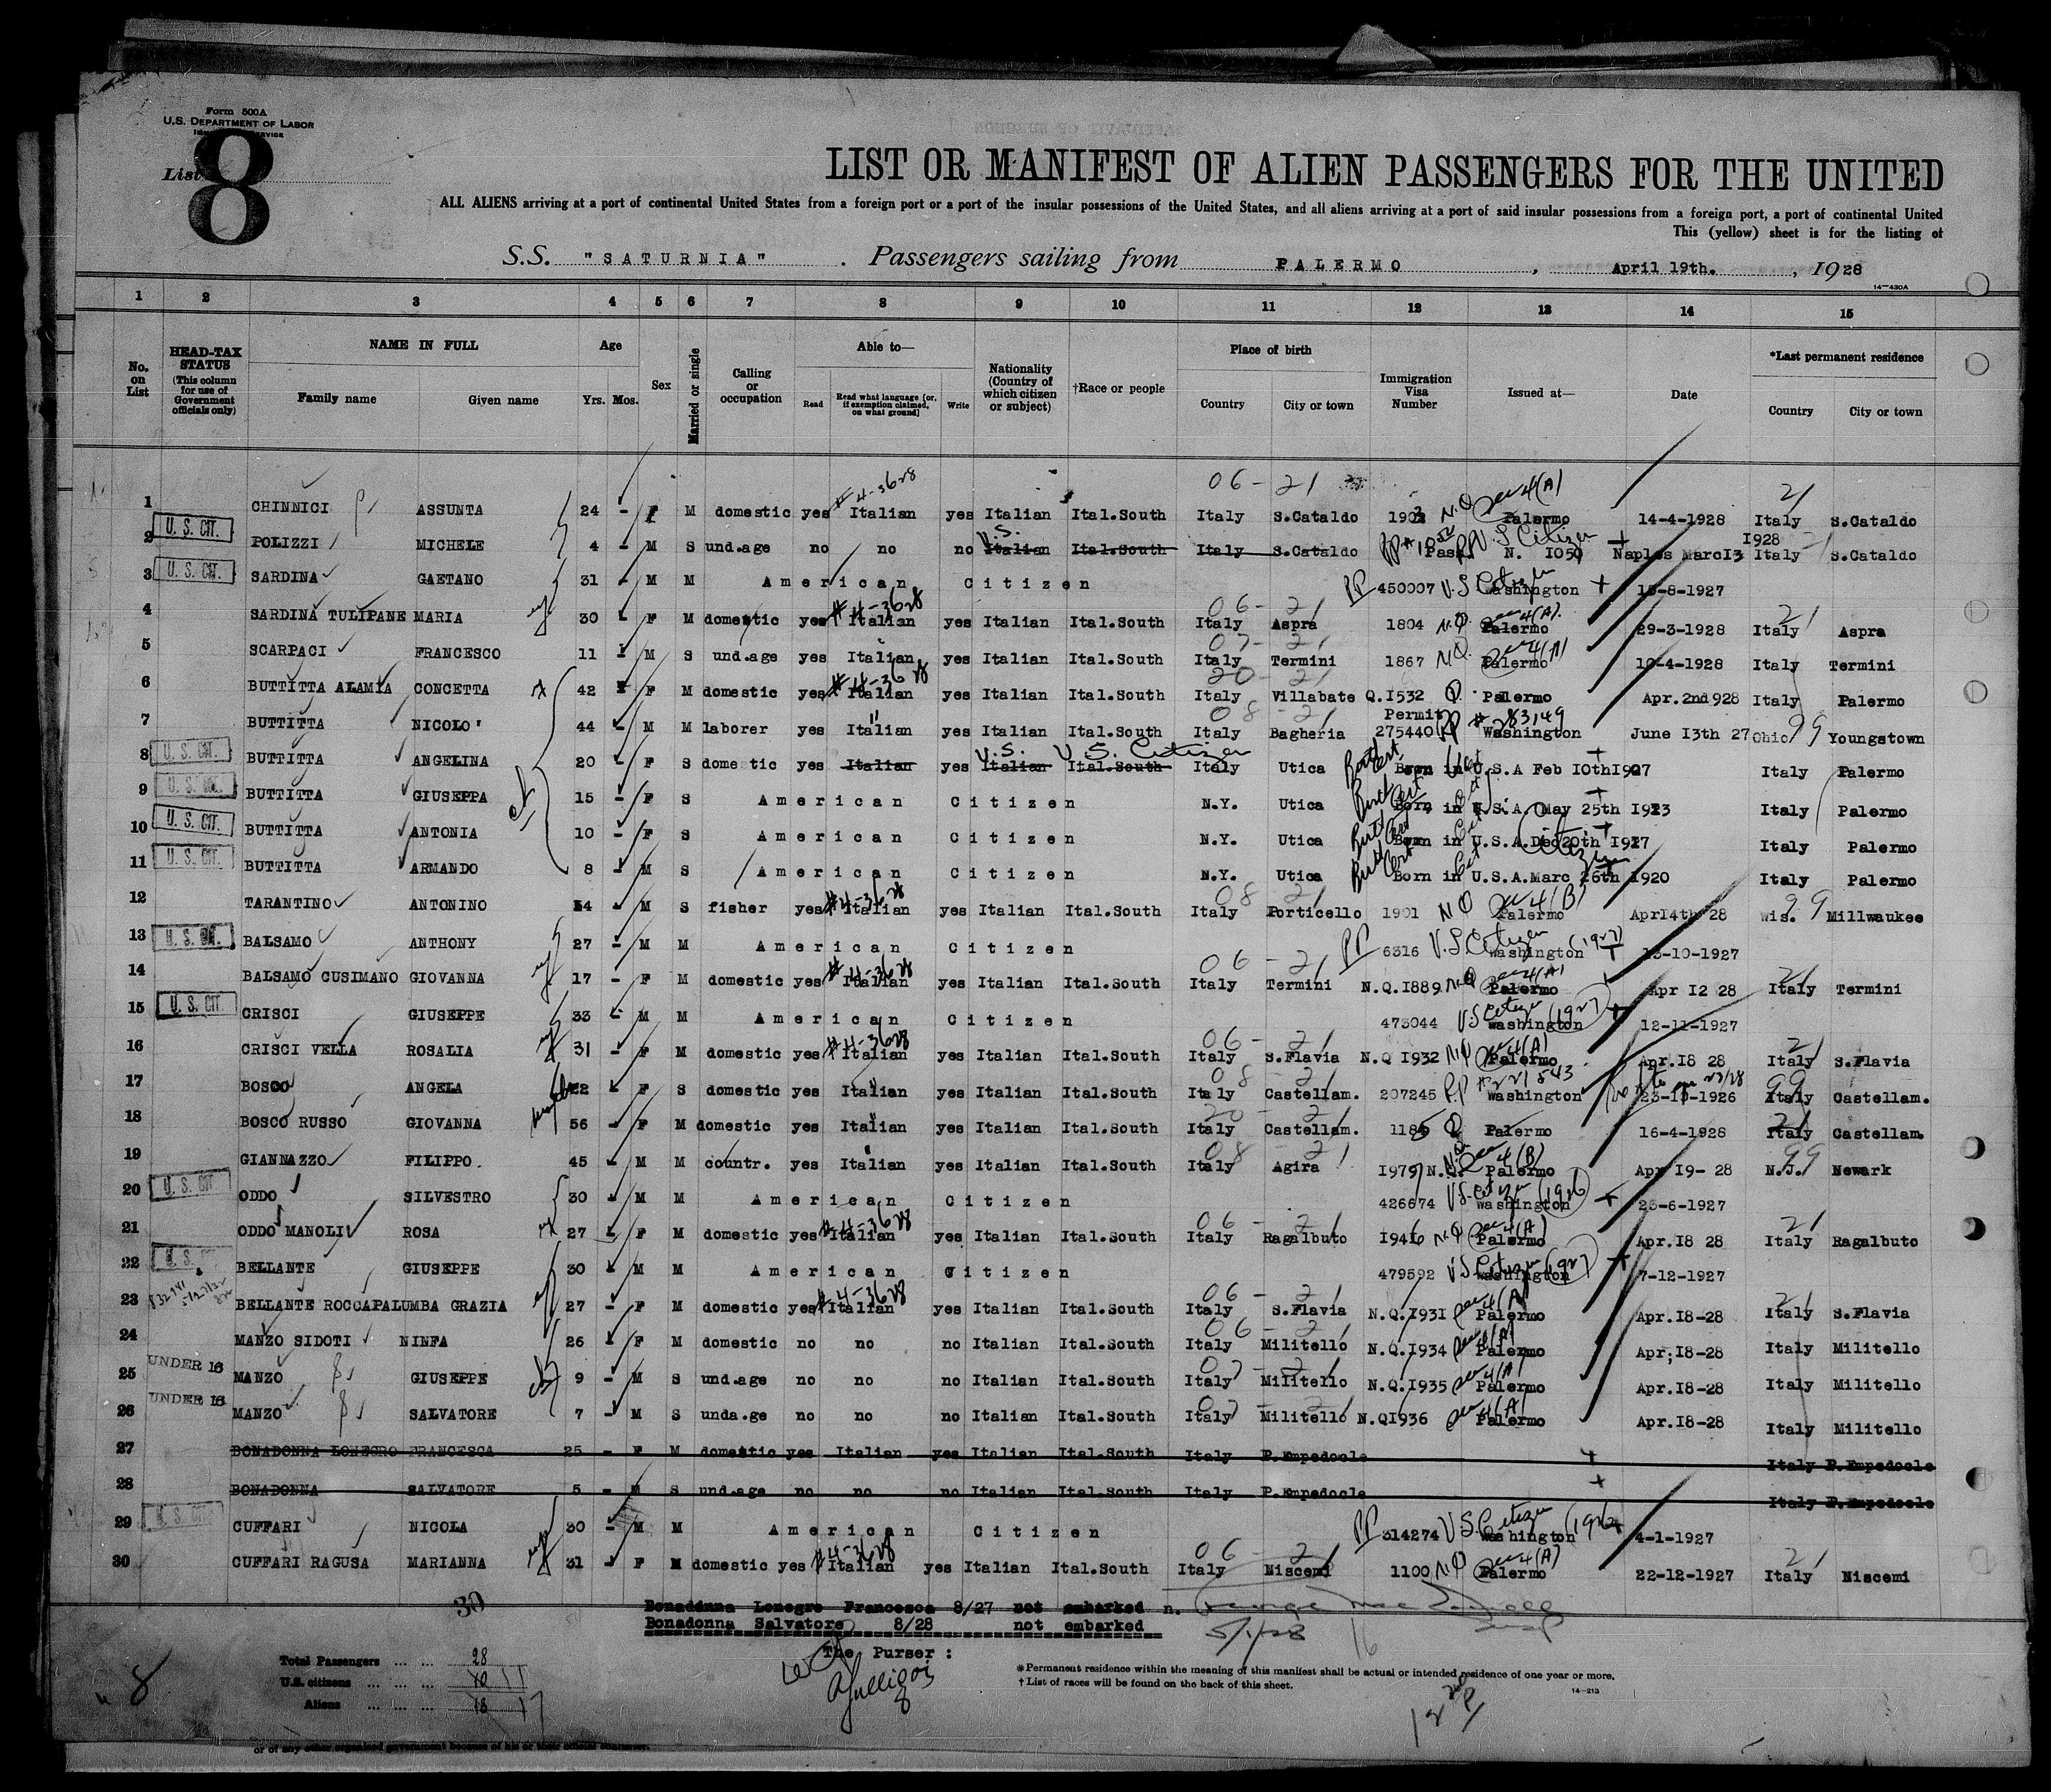 Form 500A
U.S. DEPARTMENT OF LABOR
List 8
LIST OR MANIFEST OF ALIEN PASSENGERS FOR THE UNITED
ALL ALIENS arriving at a port of continental United States from a foreign port or a port of the insular possessions of the United States, and all aliens arriving at a port of said insular possessions from a foreign port, a port of continental United
This (yellow) sheet is for the listing of
S.S. "SATURNIA". Passengers sailing from PALERMO, April 19th., 1928
14-430A
1 2 3 4 5 6 7 8 9 10 11 12 13 14 15
No. on List HEAD-TAX STATUS (This column for use of Government officials only) NAME IN FULL Family name Given name Age Yrs. Mos. Sex Married or single Calling or occupation Able to— Read Read what language [or, if exemption claimed, on what ground] Write Nationality (Country of which citizen or subject) †Race or people Place of birth Country City or town Immigration Visa Number Issued at— Date *Last permanent residence Country City or town
06-21
1 CHINNICI ASSUNTA 24 - F M domestic yes #4-3628 Italian yes Italian Ital.South Italy S.Cataldo 1903 N.Q. Palermo 14-4-1928 Italy S.Cataldo
2 U. S. CIT. POLIZZI MICHELE 4 - M S und.age no no no U.S. Italian Ital.South Italy S.Cataldo Pass. N. 1050 U.S Citizen Naples Marc13 1928 Italy S.Cataldo
3 U. S. CIT. SARDINA GAETANO 31 - M M American Citizen PP 450007 U.S Citizen Washington 15-8-1927
4 SARDINA TULIPANE MARIA 30 - F M domestic yes #4-3628 Italian yes Italian Ital.South 06-21 Italy Aspra 1804 N.Q. Palermo 29-3-1928 Italy Aspra
5 SCARPACI FRANCESCO 11 - M S und.age yes Italian yes Italian Ital.South 07-21 Italy Termini 1867 N.Q. Palermo 10-4-1928 Italy Termini
6 BUTTITTA ALAMIA CONCETTA 42 - F M domestic yes #4-3628 Italian yes Italian Ital.South 20-21 Italy Villabate Q.1532 Q. Palermo Apr.2nd 928 Italy Palermo
7 BUTTITTA NICOLO' 44 - M M laborer yes Italian yes Italian Ital.South 08-21 Italy Bagheria Permit 275440 RP #283149 Washington June 13th 27 Ohio 99 Youngstown
8 U. S. CIT. BUTTITTA ANGELINA 20 - F S domestic yes Italian yes U.S. Italian U.S. Citizen Ital.South Italy Utica Birth Cert Born in U.S.A Feb 10th1907 Italy Palermo
9 U. S. CIT. BUTTITTA GIUSEPPA 15 - F S American Citizen N.Y. Utica Birth Cert Born in U.S.A. May 25th 1913 Italy Palermo
10 U. S. CIT. BUTTITTA ANTONIA 10 - F S American Citizen N.Y. Utica Birth Cert Born in U.S.A.Dec20th 1917 Italy Palermo
11 U. S. CIT. BUTTITTA ARMANDO 8 - M S American Citizen N.Y. Utica Birth Cert Born in U.S.A.Marc 26th 1920 Italy Palermo
12 TARANTINO ANTONINO 54 - M S fisher yes #4-3628 Italian yes Italian Ital.South 08-21 Italy Porticello 1901 NQ Palermo Apr14th 28 Wis. 99 Millwaukee
13 U. S. CIT. BALSAMO ANTHONY 27 - M M American Citizen PP 6316 U.S Citizen Washington (1927) 13-10-1927
14 BALSAMO CUSIMANO GIOVANNA 17 - F M domestic yes #4-3628 Italian yes Italian Ital.South 06-21 Italy Termini N.Q.1889 Palermo Apr 12 28 Italy Termini
15 U. S. CIT. CRISCI GIUSEPPE 33 - M M American Citizen 473044 U.S Citizen Washington (1927) 12-11-1927
16 CRISCI VELLA ROSALIA 31 - F M domestic yes #4-3628 Italian yes Italian Ital.South 06-21 Italy S.Flavia N.Q 1932 Palermo Apr.18 28 Italy S.Flavia
17 BOSCO ANGELA 22 - F S domestic yes Italian yes Italian Ital.South 08-21 Italy Castellam. 207245 RP #221543 Washington 23-10-1926 Italy Castellam.
18 BOSCO RUSSO GIOVANNA 56 - F M domestic yes Italian yes Italian Ital.South 20-21 Italy Castellam. 1185 Q Palermo 16-4-1928 Italy Castellam.
19 GIANNAZZO FILIPPO. 45 - M M countr. yes Italian yes Italian Ital.South 08-21 Italy Agira 1979 N.Q. Palermo Apr 19- 28 N.J. Newark
20 U. S. CIT. ODDO SILVESTRO 30 - M M American Citizen 426674 U.S Citizen Washington (1926) 23-6-1927
21 ODDO MANOLI ROSA 27 - F M domestic yes #4-3628 Italian yes Italian Ital.South 06-21 Italy Ragalbuto 1946 N.Q Palermo Apr.18 28 Italy Ragalbuto
22 U. S. BELLANTE GIUSEPPE 30 - M M American Citizen 479592 U.S Citizen Washington (1927) 7-12-1927
23 BELLANTE ROCCAPALUMBA GRAZIA 27 - F M domestic yes #4-3628 Italian yes Italian Ital.South 06-21 Italy S.Flavia N.Q.1931 Palermo Apr.18-28 Italy S.Flavia
24 MANZO SIDOTI NINFA 26 - F M domestic no no no Italian Ital.South 06-21 Italy Militello N.Q.1934 Palermo Apr;18-28 Italy Militello
25 UNDER 16 MANZO GIUSEPPE 9 - M S und.age no no no Italian Ital.South 07-21 Italy Militello N.Q.1935 Palermo Apr.18-28 Italy Militello
26 UNDER 16 MANZO SALVATORE 7 - M S unda.ge no no no Italian Ital.South 07-21 Italy Militello N.Q1936 Palermo Apr.18-28 Italy Militello
27 BONADONNA LONEGRO FRANCESCA 25 - F M domestic yes Italian yes Italian Ital.South Italy P.Empedocle Italy P.Empedocle
28 BONADONNA SALVATORE 5 - M S und.age no no no Italian Ital.South Italy P.Empedocle Italy P.Empedocle
29 U. S. CIT. CUFFARI NICOLA 30 - M M American Citizen PP 314274 U.S Citizen Washington 4-1-1927
30 CUFFARI RAGUSA MARIANNA 31 - F M domestic yes #4-3628 Italian yes Italian Ital.South 06-21 Italy Niscemi 1100 NQ Palermo 22-12-1927 Italy Niscemi
30
Bonadonna Lonegro Francesca 8/27 not embarked n.
Bonadonna Salvatore 8/28 not embarked
5/1/28 16
The Purser :
Total Passengers ... ... 28
U.S. citizens ... ... ... 10 11
Aliens ... ... ... 18 17
8
*Permanent residence within the meaning of this manifest shall be actual or intended residence of one year or more.
†List of races will be found on the back of this sheet.
14-213
or of any other organized government because of his or their official character.